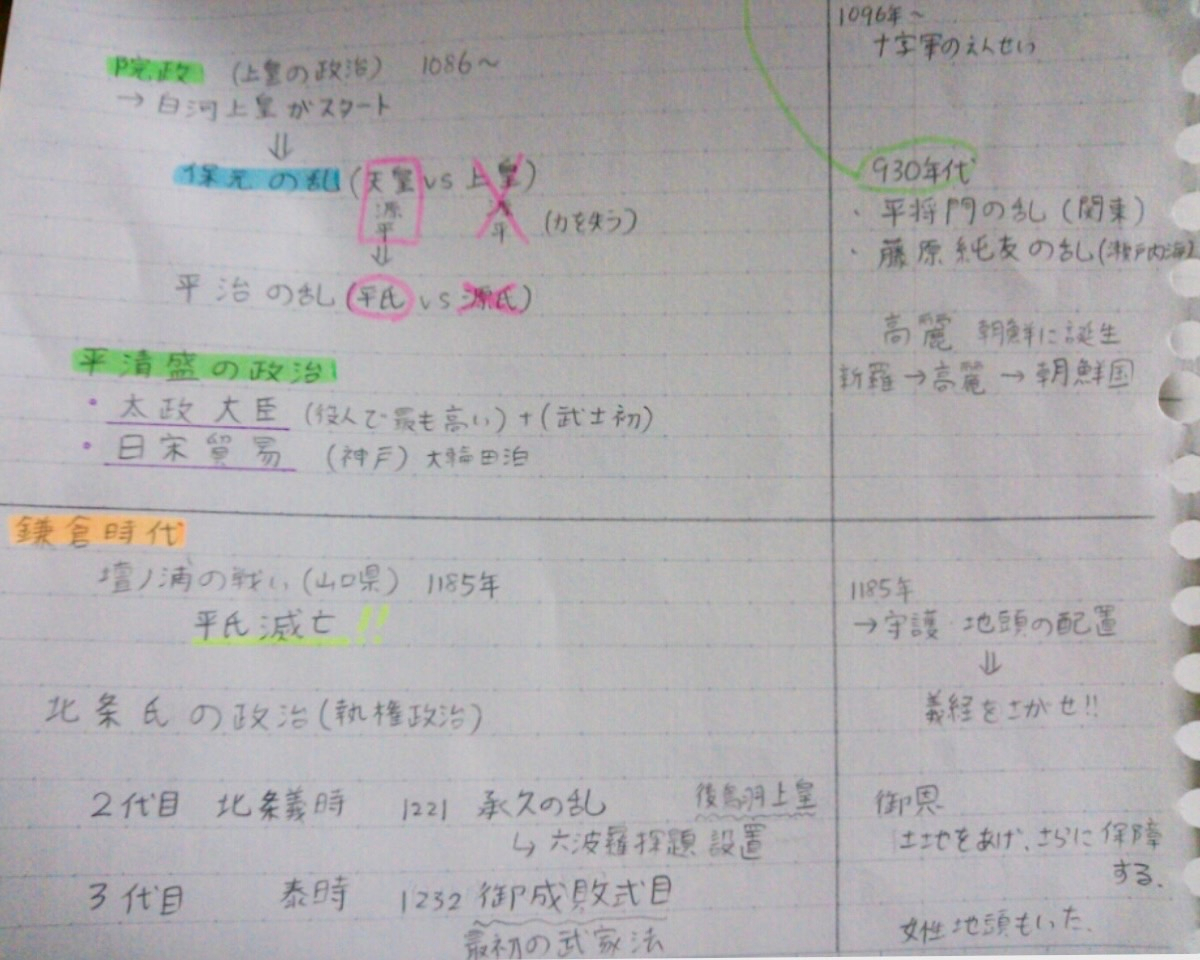 院政 (上皇の政治) 1086～
→ 白河上皇がスタート
⇓
保元の乱 (天皇 vs 上皇)
源
平 平 (力を失う)
⇓
平治の乱 (平氏 vs 源氏)
平清盛の政治
・太政大臣 (役人で最も高い) + (武士初)
・日宋貿易 (神戸) 大輪田泊
鎌倉時代
壇ノ浦の戦い (山口県) 1185年
平氏滅亡!!
北条氏の政治 (執権政治)
2代目 北条義時 1221 承久の乱 後鳥羽上皇
↳ 六波羅探題 設置
3代目 泰時 1232 御成敗式目
最初の武家法
1096年～
十字軍のえんせい
930年代
・平将門の乱 (関東)
・藤原純友の乱 (瀬戸内海)
高麗 朝鮮に誕生
新羅 → 高麗 → 朝鮮国
1185年
→ 守護 地頭の配置
⇓
義経をさがせ!!
御恩
土地をあげ、さらに保障
する。
女性地頭もいた。